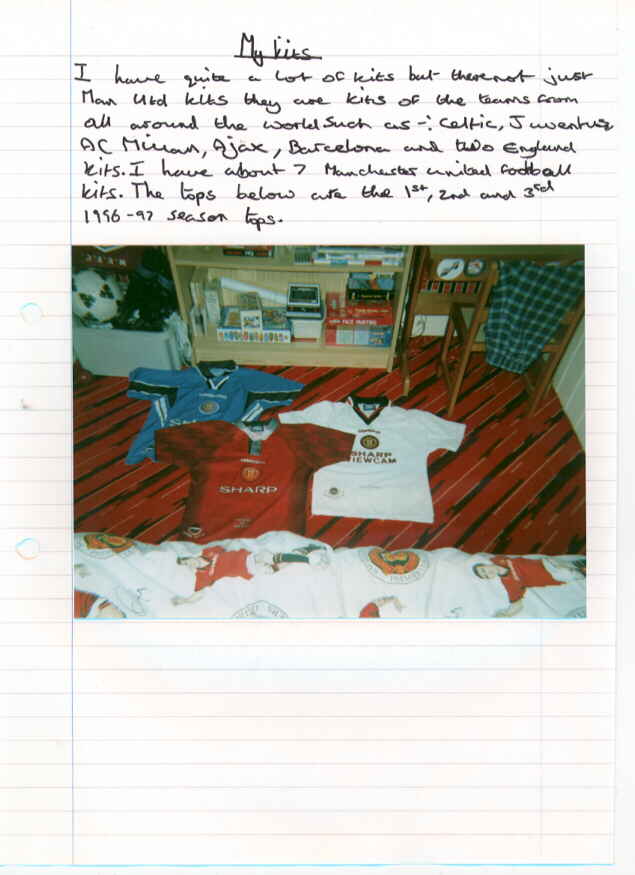 My kits
I have quite a lot of kits but therenot just
Man Utd kits they are kits of the teams from
all around the world such as -: Celtic, Juventus
AC Minan, Ajax, Barcelona and two England
kits. I have about 7 Manchester united football
kits. The tops below are the 1st, 2nd and 3rd
1996-97 season tops.
SHARP
SHARP
VIEWCAM
FACE PAINTING